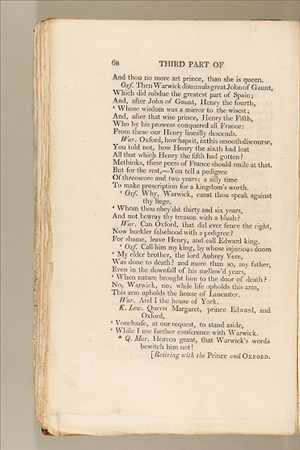 68 THIRD PART OF
And thou no more art prince, than she is queen.
Oxf. Then Warwick disannuls great John of Gaunt,
Which did subdue the greatest part of Spain;
And, after John of Gaunt, Henry the fourth,
‘ Whose wisdom was a mirror to the wisest;
And, after that wise prince, Henry the Fifth,
Who by his prowess conquered all France:
From these our Henry lineally descends.
War. Oxford, how haps it, in this smooth discourse,
You told not, how Henry the sixth had lost
All that which Henry the fifth had gotten?
Methinks, these peers of France should smile at that.
But for the rest,—You tell a pedigree
Of threescore and two years; a silly time
To make prescription for a kingdom's worth.
‘ Oxf. Why, Warwick, canst thou speak against
thy liege,
‘ Whom thou obey'dst thirty and six years,
And not bewray thy treason with a blush?
War. Can Oxford, that did ever fence the right,
Now buckler falsehood with a pedigree?
For shame, leave Henry, and call Edward king.
‘ Oxf. Call him my king, by whose injurious doom
‘ My elder brother, the lord Aubrey Vere,
Was done to death? and more than so, my father,
Even in the downfall of his mellow'd years,
‘ When nature brought him to the door of death?
No, Warwick, no; while life upholds this arm,
This arm upholds the house of Lancaster.
War. And I the house of York.
K. Lew. Queen Margaret, prince Edward, and
Oxford,
‘ Vouchsafe, at our request, to stand aside,
‘ While I use further conference with Warwick.
* Q. Mar. Heaven grant, that Warwick's words
bewitch him not!
[Retiring with the Prince and OXFORD.